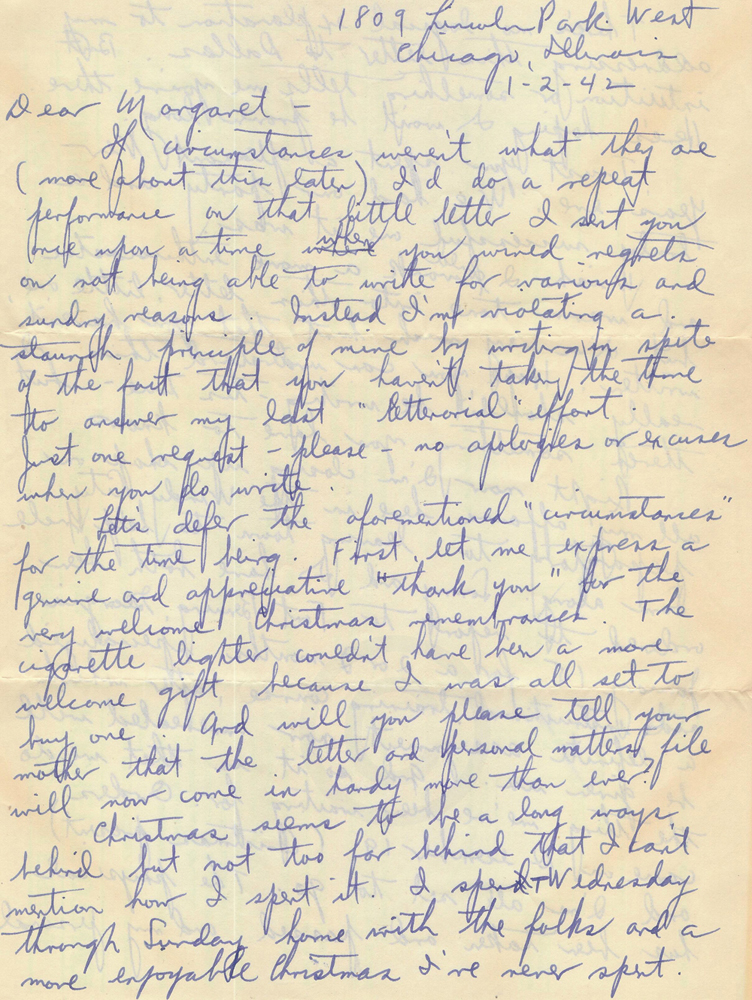 1809 Lincoln Park West
Chicago, Illinois
1-2-42
Dear Margaret -
If circumstances weren't what they are
(more about this later) I'd do a repeat
performance on that little letter I sent you
once upon a time when you wired regrets
on not being able to write for various and
sundry reasons. Instead I'm violating a
staunch principle of mine by writing in spite
of the fact that you haven't taken the time
to answer my last "letterorial" effort.
Just one request - please - no apologies or excuses
when you do write.
Let's defer the aforementioned "circumstances"
for the time being. First, let me express a
genuine and appreciative "thank you" for the
very welcome Christmas remembrances. The
cigarette lighter couldn't have been a more
welcome gift because I was all set to
buy one. And will you please tell your
mother that the letter and personal matters file
will now come in handy more than ever?
Christmas seems to be a long ways
behind but not too far behind that I can't
mention how I spent it. I spent Wednesday
through Sunday home with the folks and a
more enjoyable Christmas I've never spent.